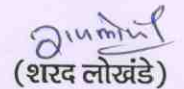 (शरद लोखंडे)